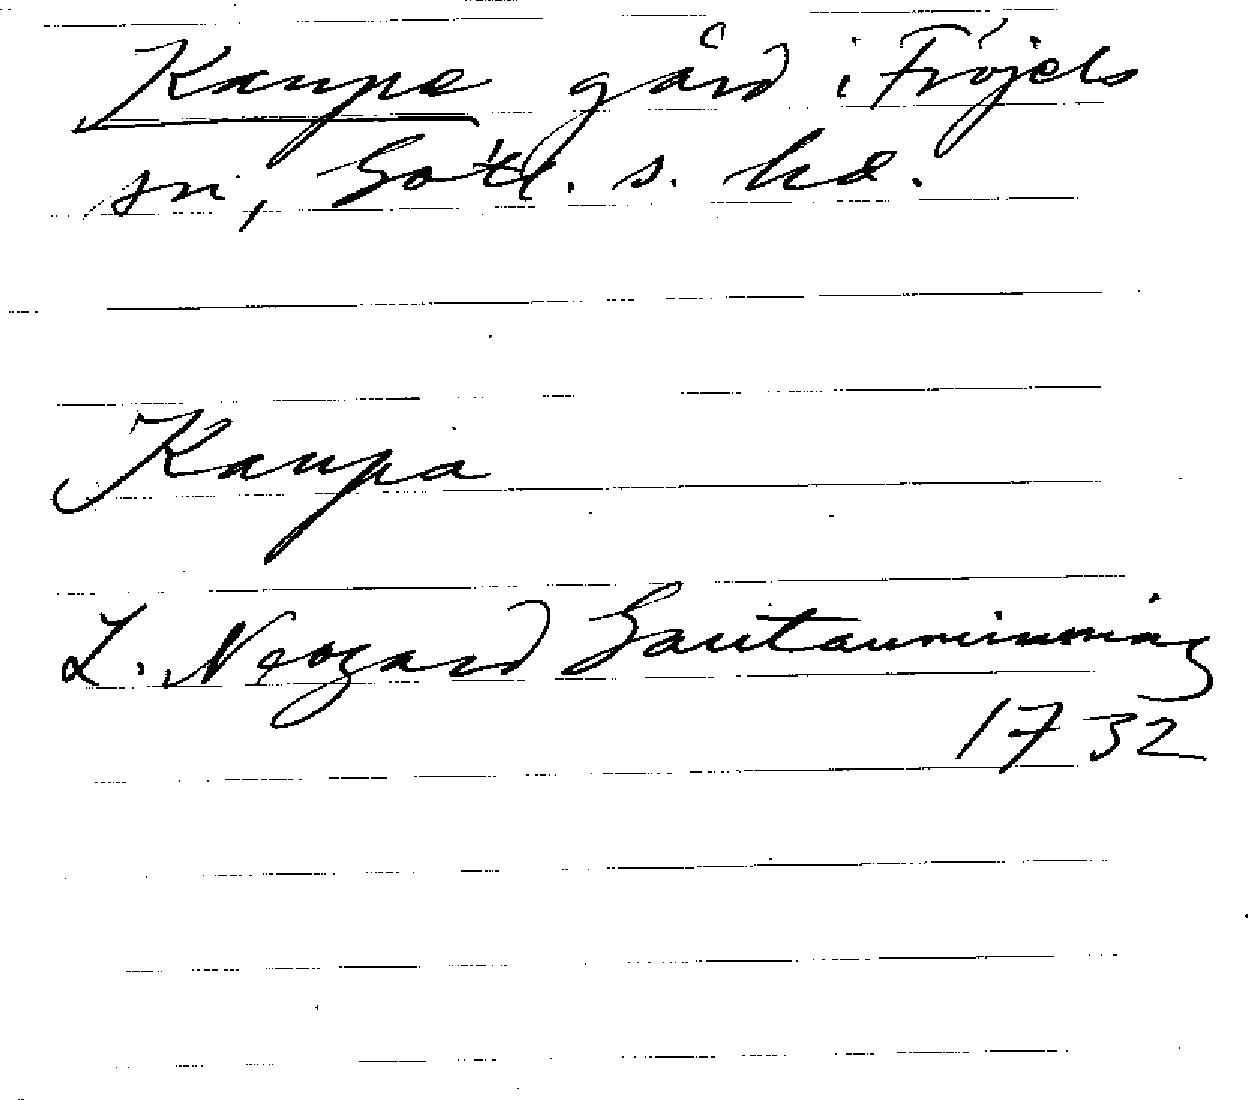 Kaupe gård i Fröjels
sn, Gotl. s. hd.
Kaupa
L. Neogard Gautauminning
1732